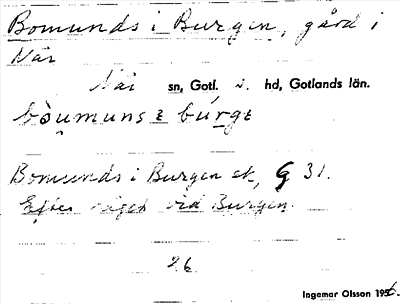 Bomunds i Burgen, gård i
När
När sn, Gotl. s. hd, Gotlands län.
bòumuns ɛ búrgɛ
Bomunds i Burgen ek, G 31.
Efter läget vid Burgen.
26.
Ingemar Olsson 1956.